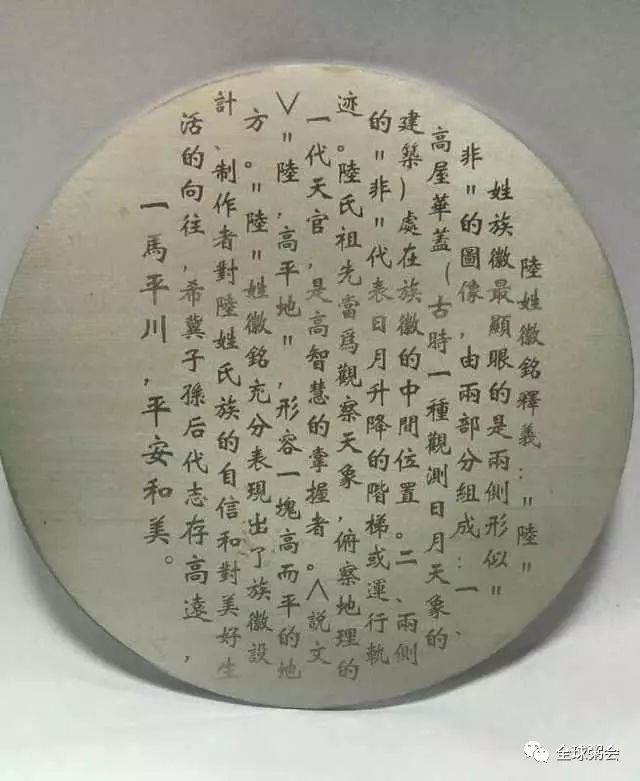 陸姓徽銘釋義："陸"
姓族徽最顯眼的是兩側形似"
非"的圖像，由兩部分組成：一、
高屋華蓋（古時一種觀測日月天象的
建築）處在族徽的中間位置。二、兩側
的"非"代表日月升降的階梯或運行軌
迹。陸氏祖先當爲觀察天象，俯察地理的
一代天官，是高智慧的掌握者。∧説文
∨"陸，高平地"，形容一塊高而平的地
方。"陸"姓徽銘充分表現出了族徽設
計、制作者對陸姓氏族的自信和對美好生
活的向往，希冀子孫后代志存高遠，
一馬平川，平安和美。
全球粥会